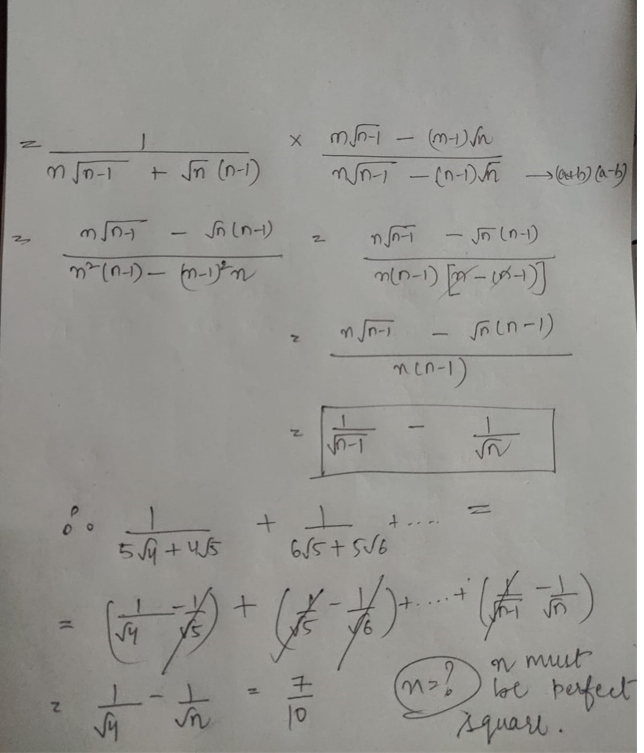 = 1/(n√n-1 + √n (n-1)) × (n√n-1 - (n-1)√n)/(n√n-1 - (n-1)√n) → (a+b) (a-b)
= (n√n-1 - √n (n-1))/(n²(n-1) - (n-1)²n) = (n√n-1 - √n (n-1))/(n(n-1) [n - (n-1)])
= (n√n-1 - √n (n-1))/(n(n-1))
= 1/√n-1 - 1/√n
∴ 1/(5√4 + 4√5) + 1/(6√5 + 5√6) + .... =
= (1/√4 - 1/√5) + (1/√5 - 1/√6) + .... + (1/√n-1 - 1/√n)
= 1/√4 - 1/√n = 7/10 n=? n must
be perfect
square.